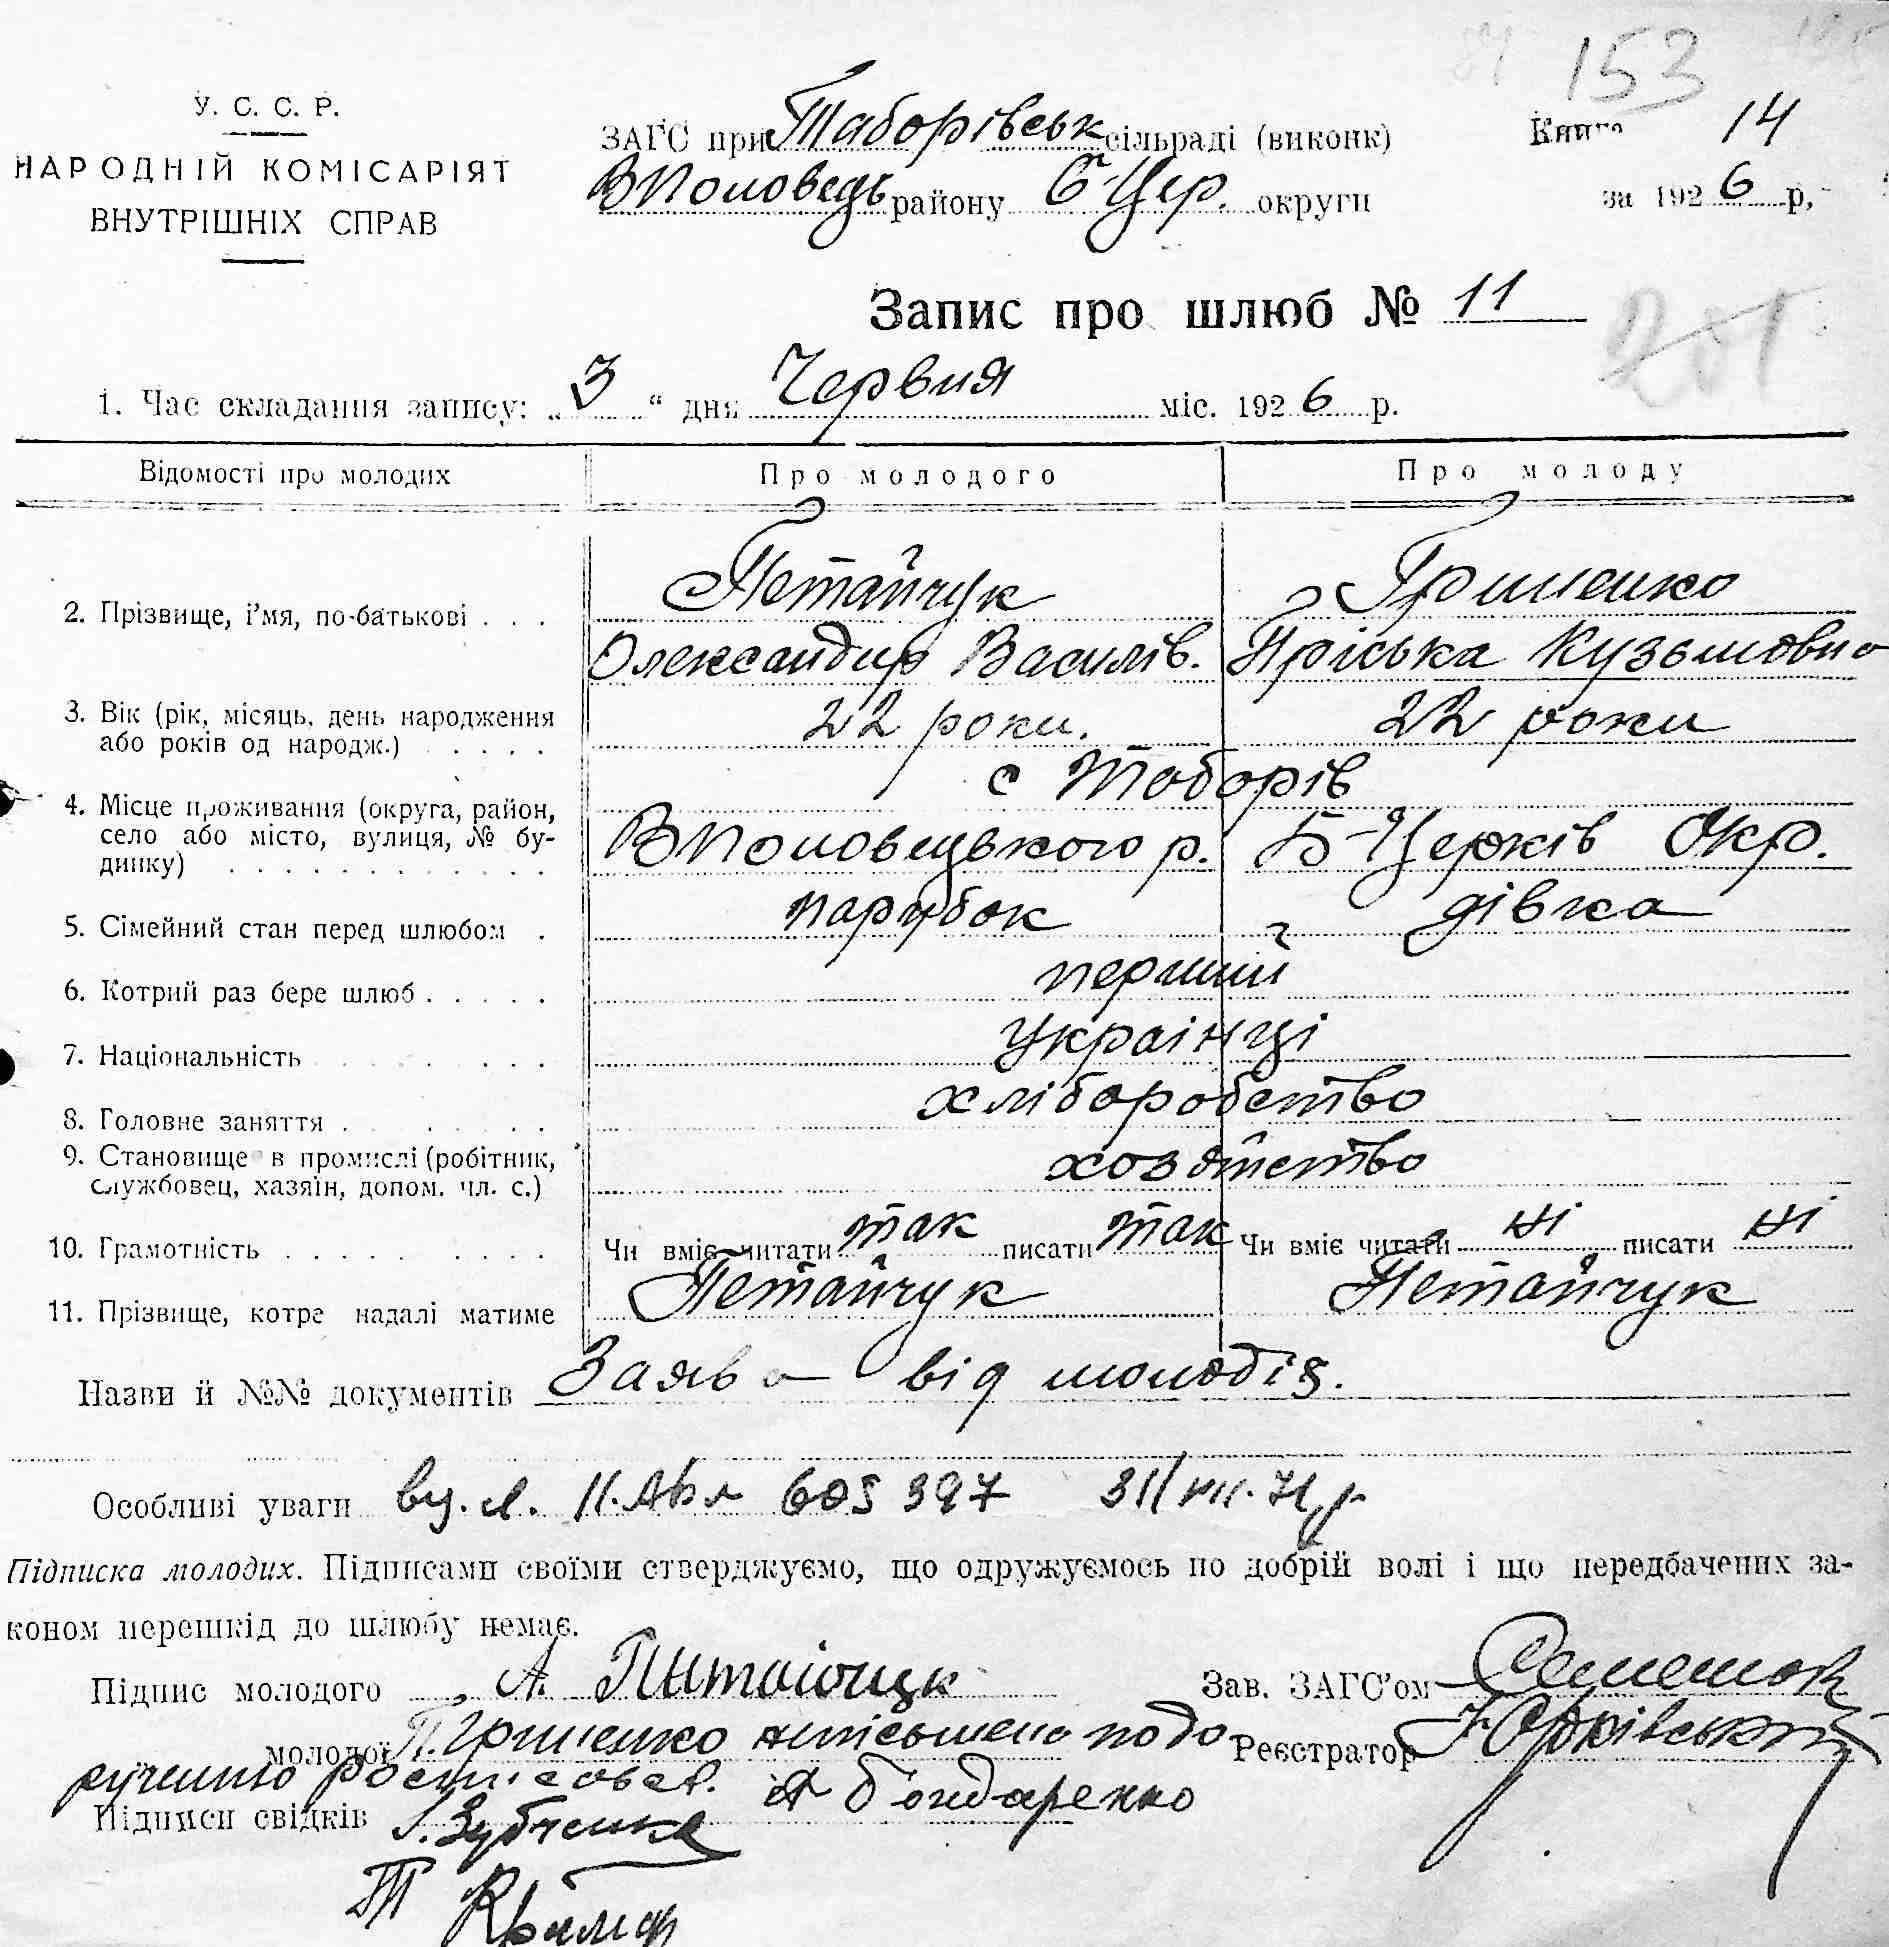 153
У. С. С. Р.
НАРОДНІЙ КОМІСАРІЯТ
ВНУТРІШНІХ СПРАВ
ЗАГС при Таборівськ сільраді (виконк)
ВПоловець району Б-Цер. округи
Книга 14
за 1926 р.
Запис про шлюб № 11
201
1. Час складання запису: „3“ дня Червня міс. 1926 р.
Відомості про молодих Про молодого Про молоду
2. Прізвище, і'мя, по-батькові . . . Петайчук Гриненко
Олександир Василів. Пріська Кузьмовна
3. Вік (рік, місяць, день народження
або років од народж.) . . . . . 22 роки. 22 роки
с Таборів
4. Місце проживання (округа, район,
село або місто, вулиця, № бу-
динку) . . . . . . . . . . . ВПоловецького р. Б-Церків Окр.
5. Сімейний стан перед шлюбом . парубок дівка
6. Котрий раз бере шлюб . . . . . перший
7. Національність . . . . . . . . українці
8. Головне заняття . . . . . . . . хліборобство
9. Становище в промислі (робітник,
службовец, хазяїн, допом. чл. с.) хозяйство
10. Грамотність . . . . . . . . . Чи вміє читати так писати так Чи вміє читати ні писати ні
11. Прізвище, котре надалі матиме Петайчук Петайчук
Назви й №№ документів Заява від молодіх.
Особливі уваги 605397
Підписка молодих. Підписами своїми стверджуємо, що одружуємось по добрій волі і що передбачених за-
коном перешкід до шлюбу немає.
Підпис молодого А. Зав. ЗАГС'ом
молодої П. Гриненко по до Реєстратор
ручению А Бондаренко
Підписи свідків